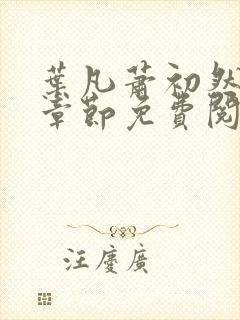 葉凡蕭初然
章節免費閱
汪慶廣